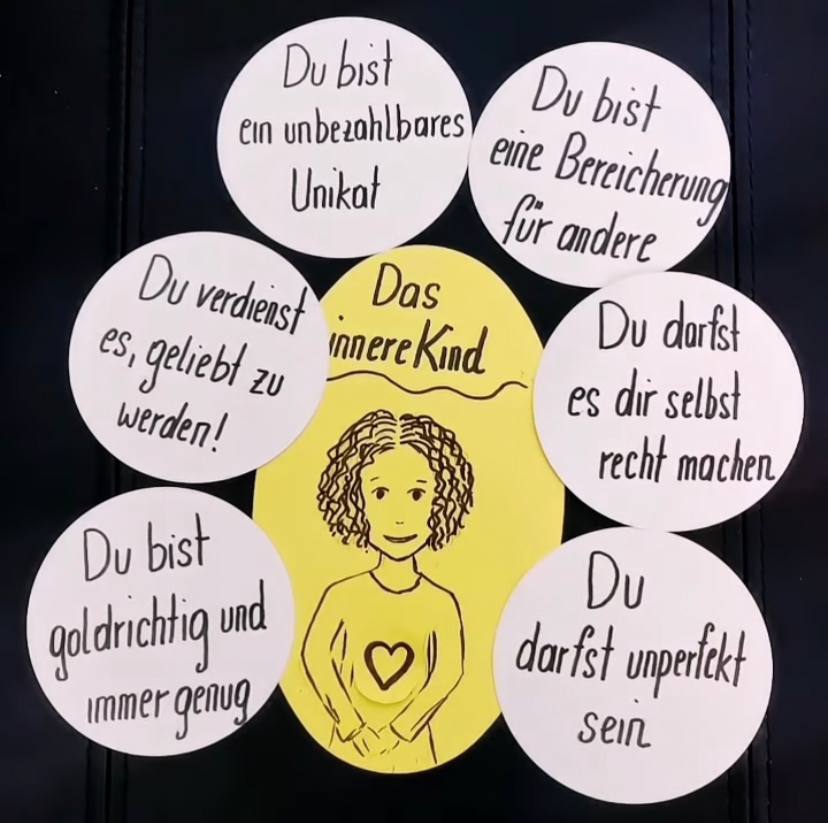 Du bist
ein unbezahlbares
Unikat
Du bist
eine Bereicherung
für andere
Du verdienst
es, geliebt zu
werden!
Das
innere Kind
Du darfst
es dir selbst
recht machen
Du bist
goldrichtig und
immer genug
Du
darfst unperfekt
sein